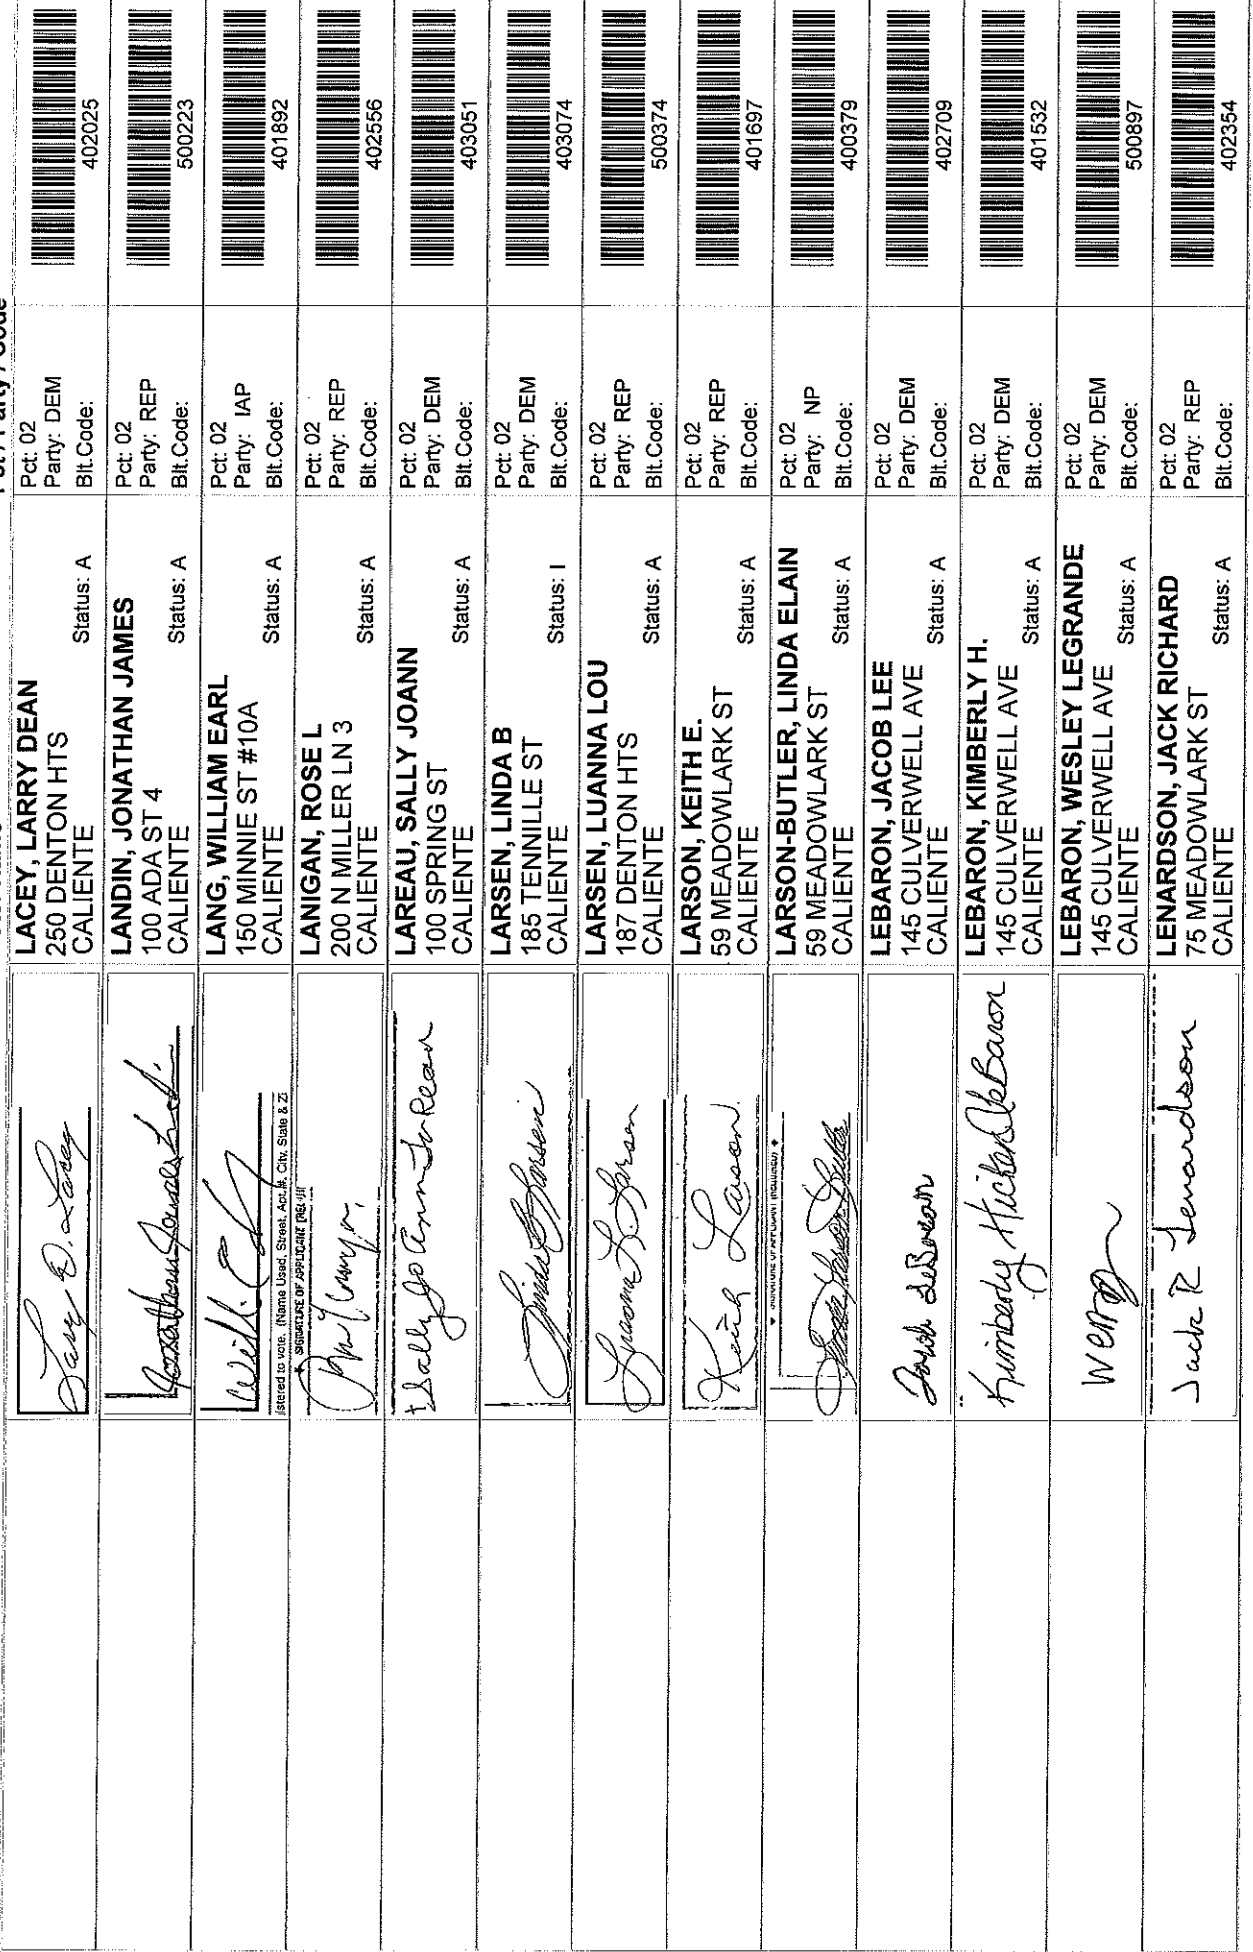 Pct / Party / Code
LACEY, LARRY DEAN
250 DENTON HTS
CALIENTE Status: A
Pct: 02
Party: DEM
Blt.Code:
402025
Larry D. Lacey
LANDIN, JONATHAN JAMES
100 ADA ST 4
CALIENTE Status: A
Pct: 02
Party: REP
Blt.Code:
500223
LANG, WILLIAM EARL
150 MINNIE ST #10A
CALIENTE Status: A
Pct: 02
Party: IAP
Blt.Code:
401892
istered to vote. (Name Used, Street, Apt.#, City, State & Zi
SIGNATURE OF APPLICANT
LANIGAN, ROSE L
200 N MILLER LN 3
CALIENTE Status: A
Pct: 02
Party: REP
Blt.Code:
402556
LAREAU, SALLY JOANN
100 SPRING ST
CALIENTE Status: A
Pct: 02
Party: DEM
Blt.Code:
403051
Sally Jo Ann LaReau
LARSEN, LINDA B
185 TENNILLE ST
CALIENTE Status: I
Pct: 02
Party: DEM
Blt.Code:
403074
Linda B Larsen
LARSEN, LUANNA LOU
187 DENTON HTS
CALIENTE Status: A
Pct: 02
Party: REP
Blt.Code:
500374
Luanna L. Larsen
LARSON, KEITH E.
59 MEADOWLARK ST
CALIENTE Status: A
Pct: 02
Party: REP
Blt.Code:
401697
Keith Larson
LARSON-BUTLER, LINDA ELAIN
59 MEADOWLARK ST
CALIENTE Status: A
Pct: 02
Party: NP
Blt.Code:
400379
SIGNATURE OF APPLICANT (REQUIRED)
Linda Larson Butler
LEBARON, JACOB LEE
145 CULVERWELL AVE
CALIENTE Status: A
Pct: 02
Party: DEM
Blt.Code:
402709
Jacob LeBaron
LEBARON, KIMBERLY H.
145 CULVERWELL AVE
CALIENTE Status: A
Pct: 02
Party: DEM
Blt.Code:
401532
Kimberly Hicken LeBaron
LEBARON, WESLEY LEGRANDE
145 CULVERWELL AVE
CALIENTE Status: A
Pct: 02
Party: DEM
Blt.Code:
500897
LENARDSON, JACK RICHARD
75 MEADOWLARK ST
CALIENTE Status: A
Pct: 02
Party: REP
Blt.Code:
402354
Jack R Lenardson